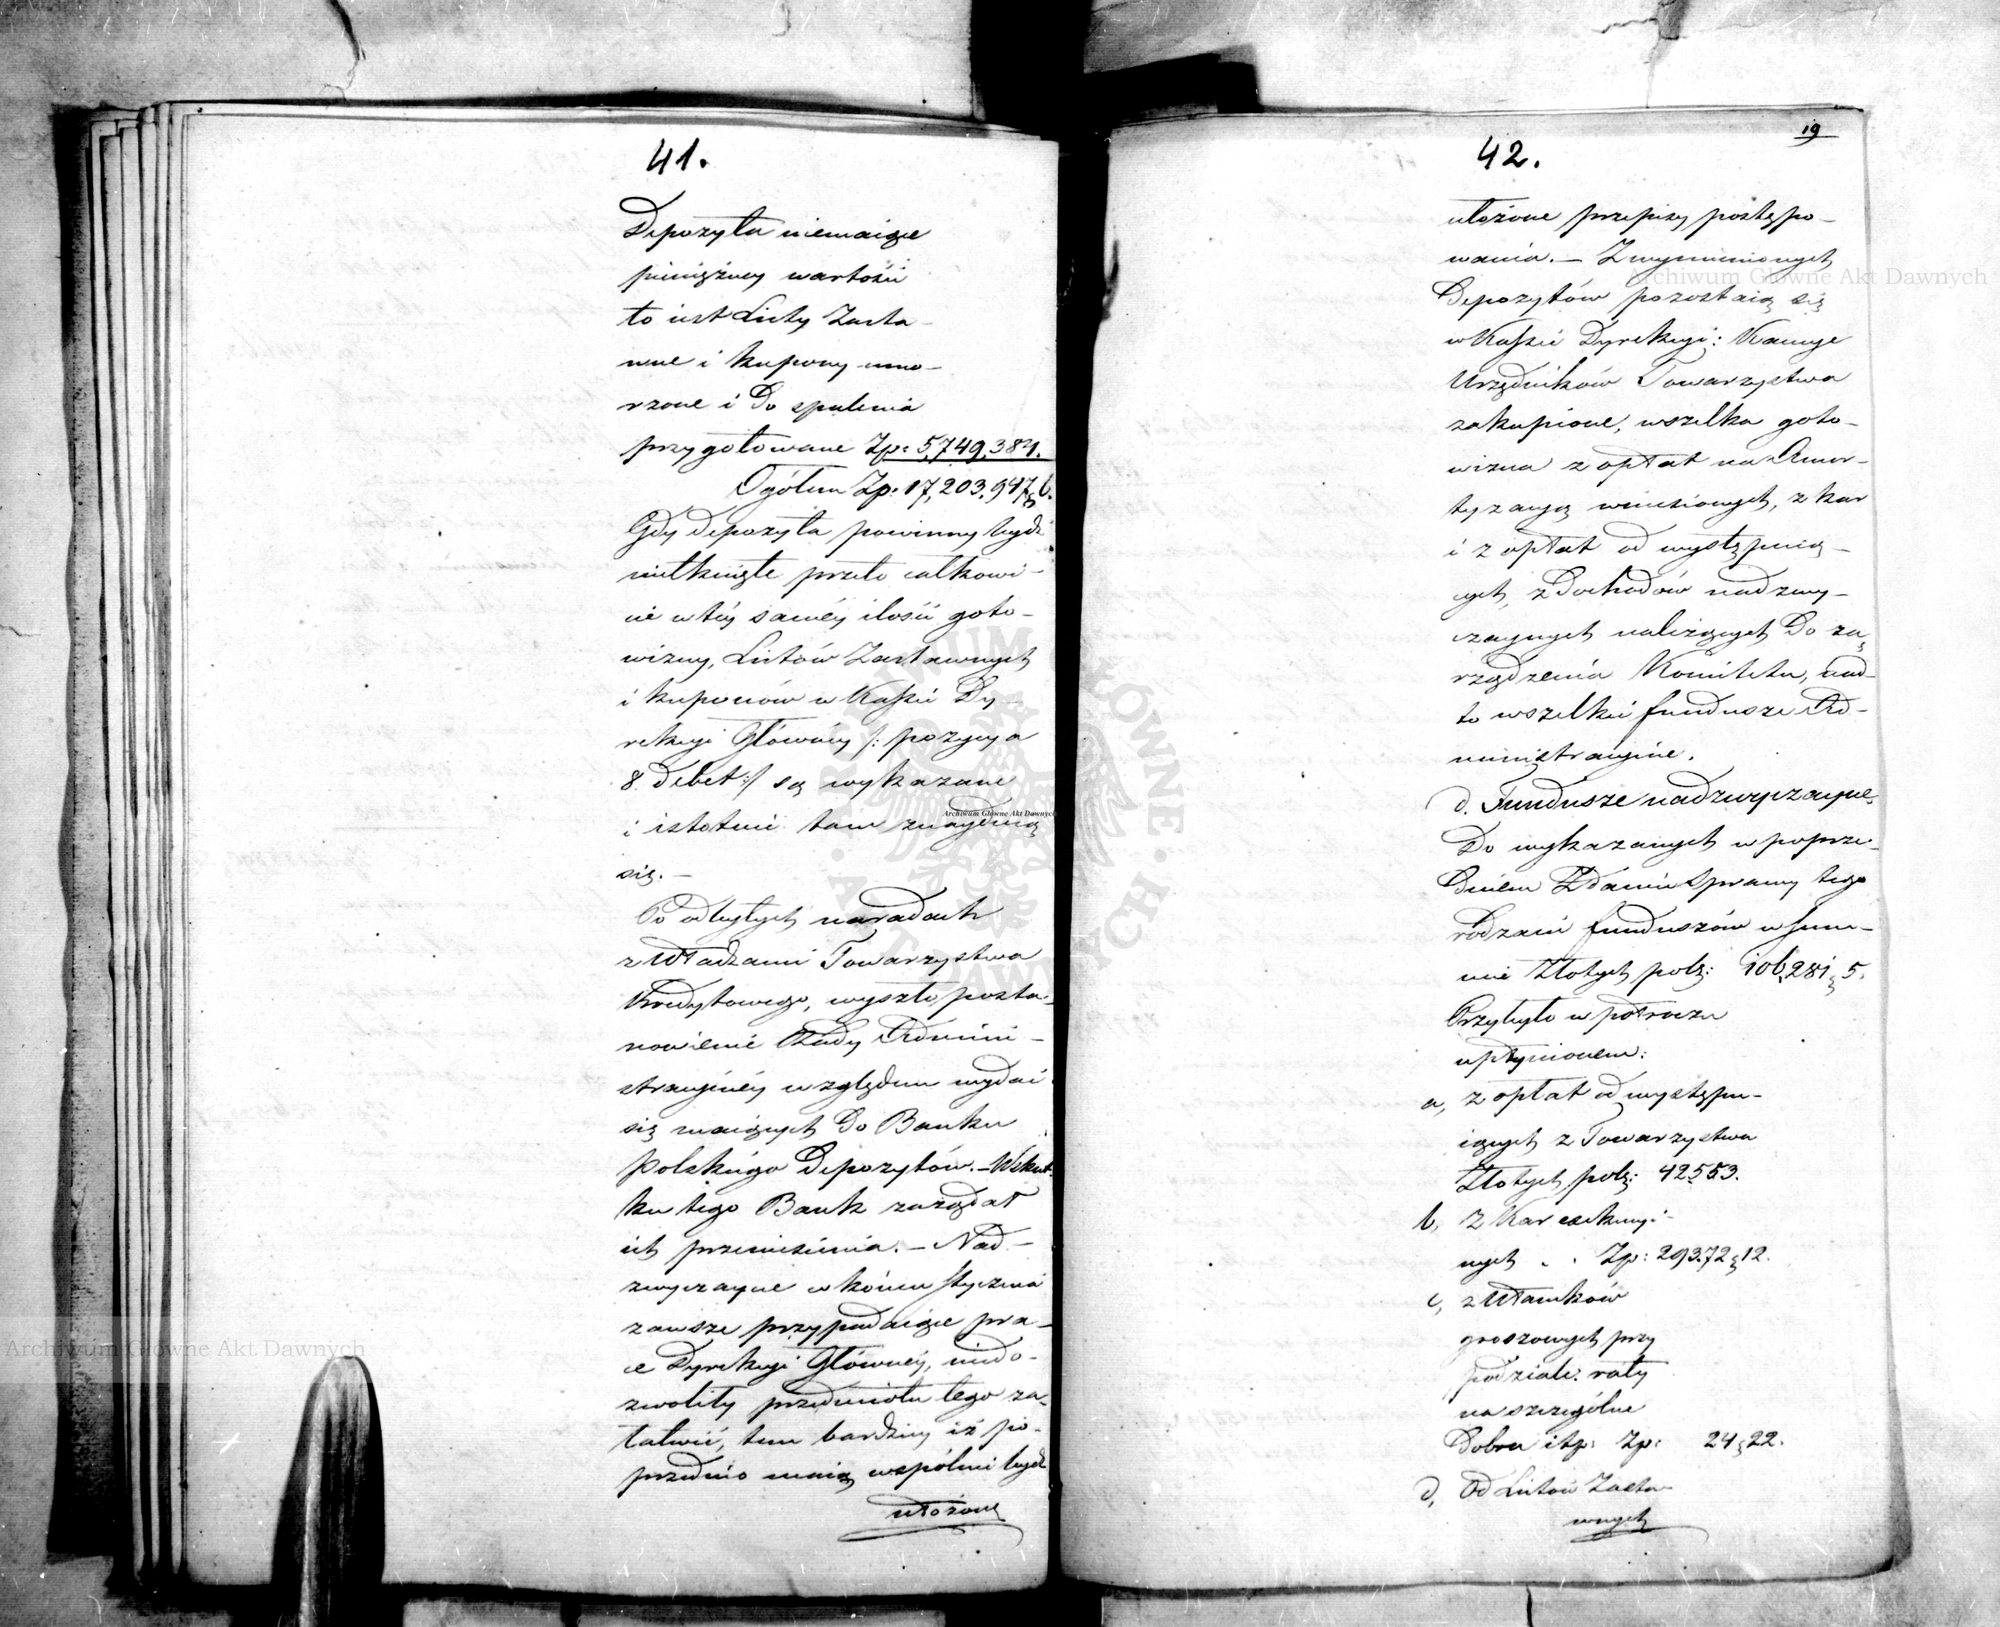 41.
Depozyta niemaiące
pieniężney wartości
to iest Listy Zasta-
wne i kupony umo-
rzone i do spalenia
przygotowane Zp: 5,749,384.
Ogółem Zp: 17,203,947 6.
Gdy depozyta powinny bydź
nietknięte przeto całkowi-
cie w téy saméy ilości goto-
wizny, Listów Zastawnych
i kuponów w Kassie Dy-
rekcyi Główney /: pozycya
8 debet :/ są wykazane
i istotnie tam znayduią
się. -
Po odbytych naradach
z Władzami Towarzystwa
Kredytowego, wyszło posta-
nowienie Rady Admini-
stracyinéy względem wydać
się maiących do Banku
Polskiego Depozytów. - Wskut-
ku tego Bank zażądał
ich przeniesienia. - Nad-
zwyczayne w końcu Stycznia
zawsze przypadaiące pra-
ce Dyrekcyi Główney, niedo-
zwoliły przedmiotu tego za-
łatwić, tem bardziey iż po-
przednio maią wspólnie bydź
ułożone
19
42.
ułożone przepisy postępo-
wania. - Z wymienionych
Depozytów pozostaią się
w Kassie Dyrekcyi: Kaucye
Urzędników Towarzystwa
zakupione, wszelka goto-
wizna z opłat na Amor-
tyzacyą wniesionych, z kar
i z opłat od występuią-
cych, z Dochodów nadzwy-
czaynych należących do za-
rządzenia Komitetu, nad-
to wszelkie fundusze Ad-
ministracyine.
d. Fundusze nadzwyczayne,
Do wykazanych w poprze-
dniem Zdaniu Sprawy tego
rodzaiu funduszów w sum-
mie Złotych pols: 106,281 5.
Przybyło w półroczu
upłynionem:
a, z opłat od występu-
iących z Towarzystwa
Złotych pols: 42553.
b, z Kar exekucyi-
nych . . Zp: 29372 12.
c, z Ułamków
groszowych przy
podziale raty
na szczególne
Dobra itp: Zp: 24 22.
d, Od Listów Zasta-
wnych
Archiwum Główne Akt Dawnych
Archiwum Główne Akt Dawnych
Archiwum Główne Akt Dawnych